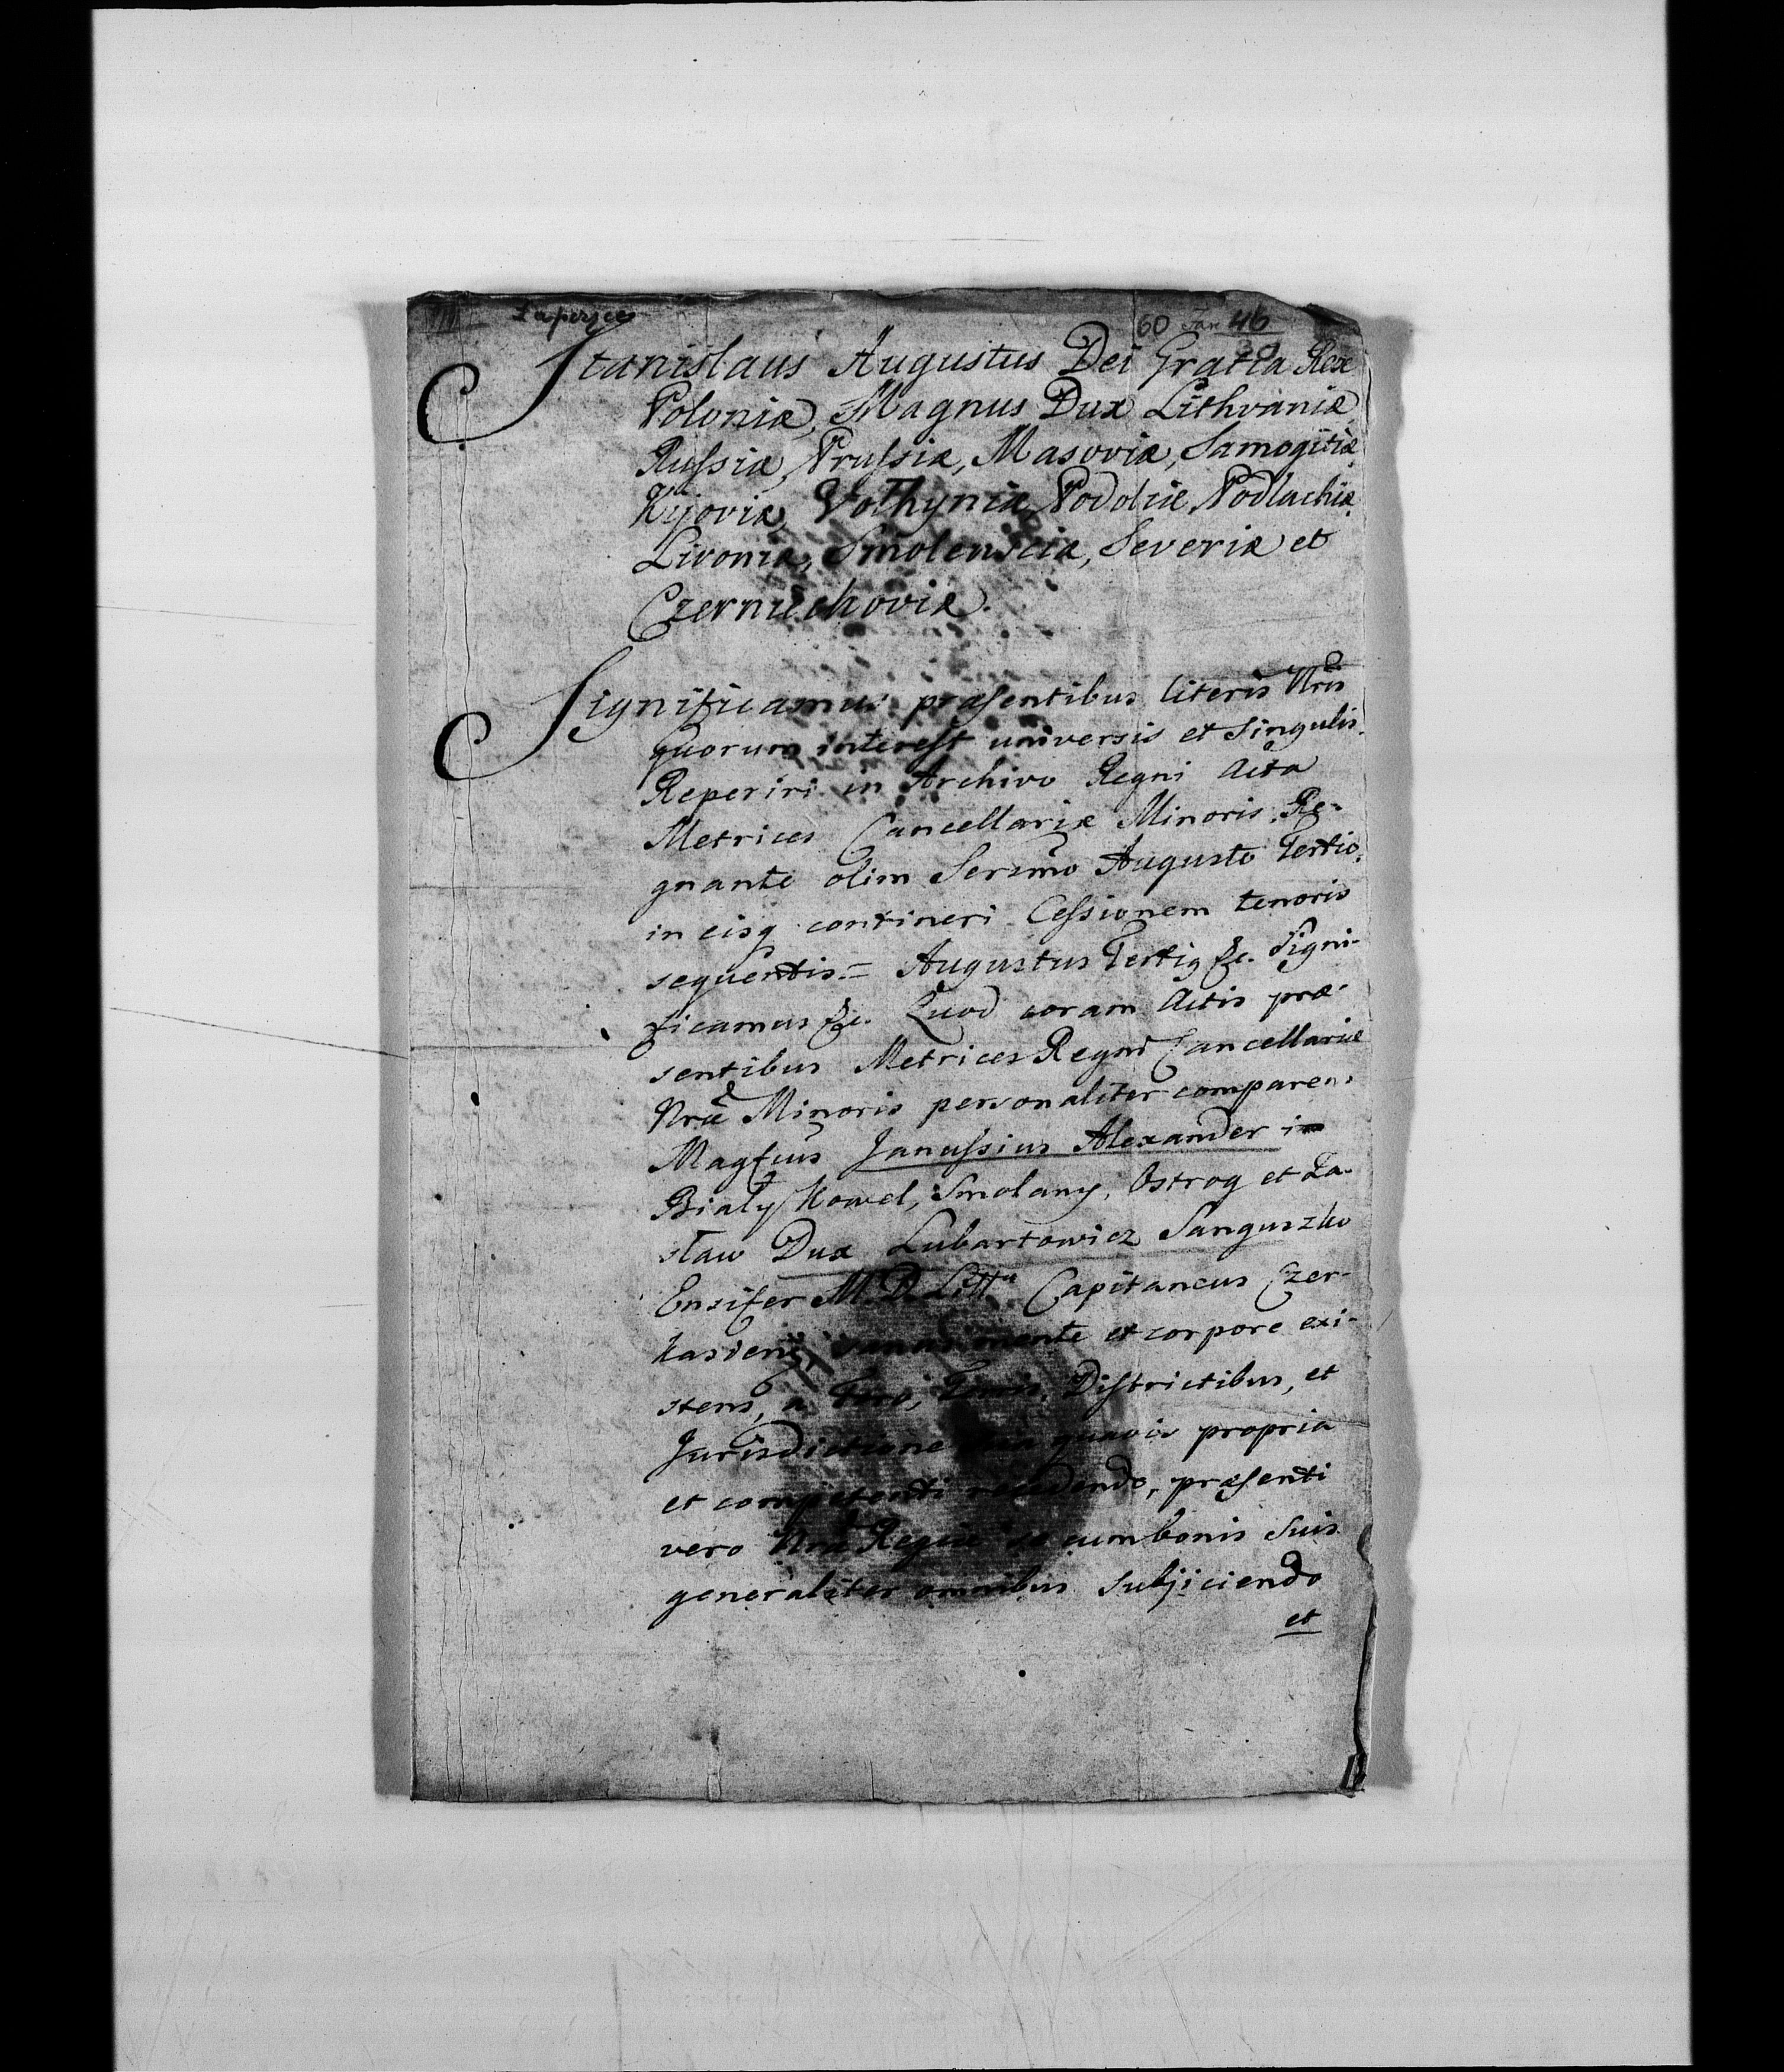 60 Jan 46
Stanislaus Augustus Dei Gratia Rex
Poloniæ, Magnus Dux Lithvaniæ
Russiæ, Prussiæ, Masoviæ, Samogitiæ,
Kijoviæ, Volhyniæ, Podoliæ, Podlachiæ,
Livoniæ, Smolensciæ, Severiæ et
Czerniechoviæ.
Significamus præsentibus literis Nris
quorum interest universis et singulis.
Reperiri in Archivo Regni Acta
Metrices Cancellariæ Minoris, Re-
gnante olim Serzmo Augusto Tertio,
in eisq contineri Cessionem tenoris
sequentis.= Augustus Tertig &c. Signi-
ficamus &c. Quod coram Actis præ-
sentibus Metrices Regni Cancellariæ
Nræ Minoris personaliter comparens
Magfcus Janussius Alexander in
Biały Kowel, Smolany, Ostrog et Za-
sław Dux Lubartowicz Sanguszko
Ensifer M. D. Litt. Capitaneus Czer-
kasiens, sanus mente et corpore exi-
stens, a Foro, Terris, Districtibus, et
Jurisdictione sua quavis propria
et competenti recedendo, præsenti
vero Nræ Regiæ se cum bonis suis
generaliter omnibus subjiciendo
et